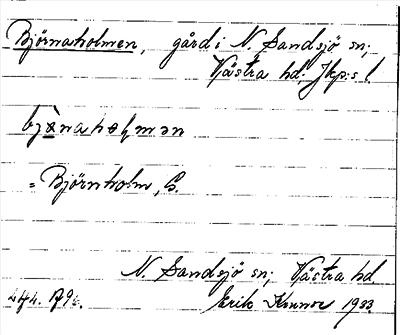 Björnaholmen, gård i N. Sandsjö sn;
Västra hd. Jkp:s l.
bjɷ̀naholmən
= Björnholm, G.
N. Sandsjö sn; Västra hd.
Erik 1933